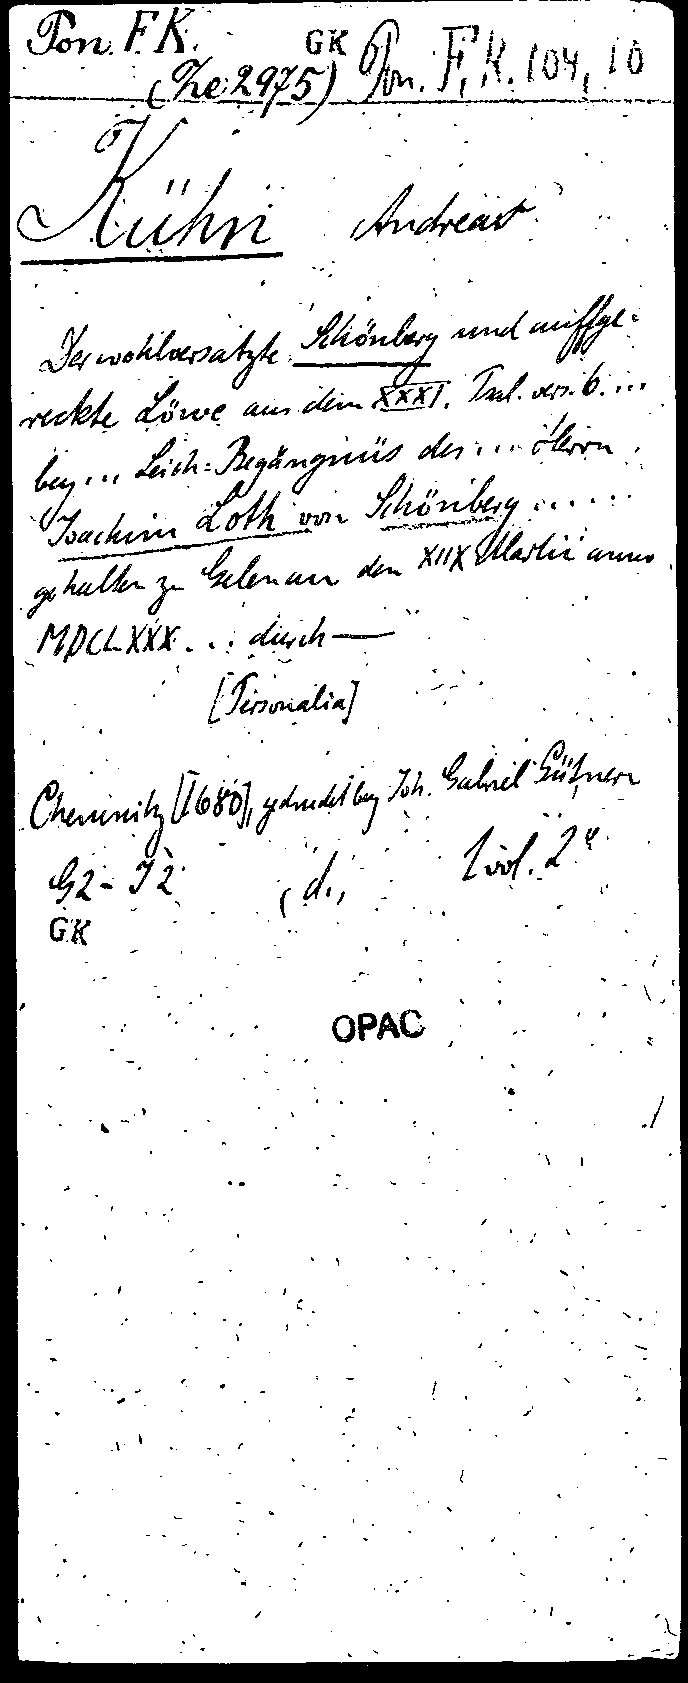 Pon. F. K.
GK
(Ze 2975) Pon. F. K. 104, 10
Kühn Andreas
Der wohlversatzte Schönberg und auffge-
reckte Löwe aus dem XXXI. Psal. vers. 6. ...
bey ... Leich-Begängnüs des ... Herrn
Joachim Loth von Schönberg ......
gehalten zu Gelenau den XIIX Martii anno
MDCLXXX ... durch —
[Personalia]
Chemnitz [1680], gedruckt bey Joh. Gabriel Gütnern
G2 - J2 , d., 1 vol. 2°
GK
OPAC